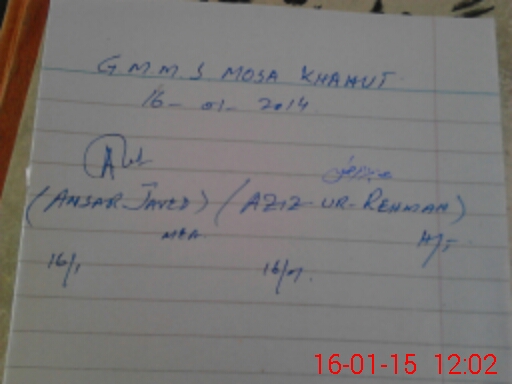 GMMS MOSA KHAHUT
16-01-2014
(ANSAR JAVED) (AZIZ-UR-REHMAN)
MEA H/T
16/1 16/01.
16-01-15 12:02